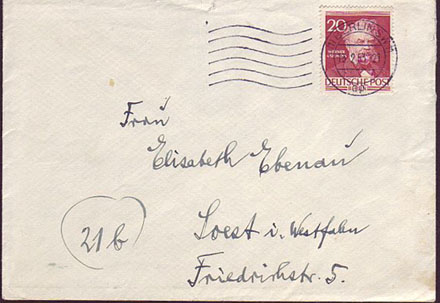 20
DEUTSCHE POST
Frau
Elisabeth Ebenau
21b
Soest i. Westfalen
Friedrichstr. 5.